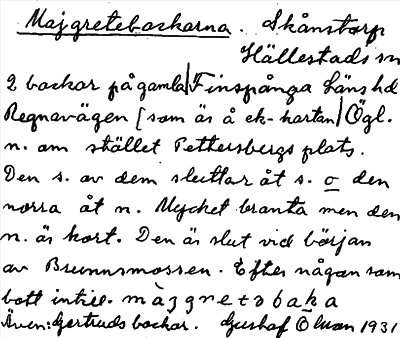 Majgretebackarna. Skånstorp
Hällestads sn
2 backar på gamla Finspånga läns hd
Regnavägen [som är å ek-kartan] Ögl.
n. om stället Pettersbergs plats.
Den s. av dem sluttar åt s. o den
norra åt n. Mycket branta men den
n. är kort. Den är slut vid början
av Brunnsmossen. Efter någon som
bott intill. màjgretəbaka
Även: Gertruds backar. Gustaf Öman 1931